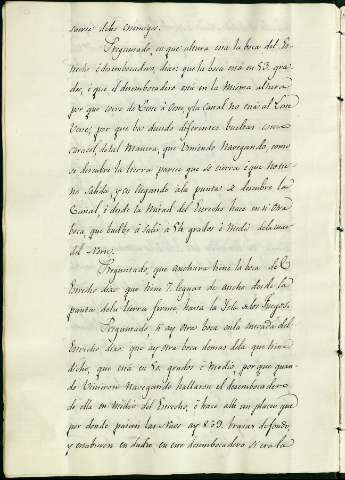 saver delos enemigos.
Preguntado, en que altura esta la boca del Es-
trecho i desembocadero, dixo: que la boca está en 53. gra-
dos, i que el desembocadero está en la misma altura
por que corre de Leste á Oeste, y la canal no está al Leste
Oeste, por que ba dando diferentes bueltas como
caracol, detal manera, que viniendo navegando, como
se descubre la tierra parece que se cierra i que no tie-
ne salida, y en llegando ala punta se descubre la
Canal, i desde la mitad del Estrecho hace en si otra
boca, que buelbe á salir a 54 grados i medio dela mar
del Norte.
Preguntado, que anchura tiene la boca del
Estrecho dixo que tiene 7. leguas de ancho desde la
punta dela tierra firme, hasta la Isla delos fuegos.
Preguntado, si ay otra boca enla entrada del
Estrecho dixo que ay otra boca demas dela que tiene
dicho, que está en 54. grados i medio, por que quan-
do vinieron navegando hallaron el desembocadero
de ella en medio del Estrecho, i hace alli un placer que
por donde pasan las Naos ay 8. 39. brazas de fondo,
y estubieron en duda, en ese desembocadero si era la